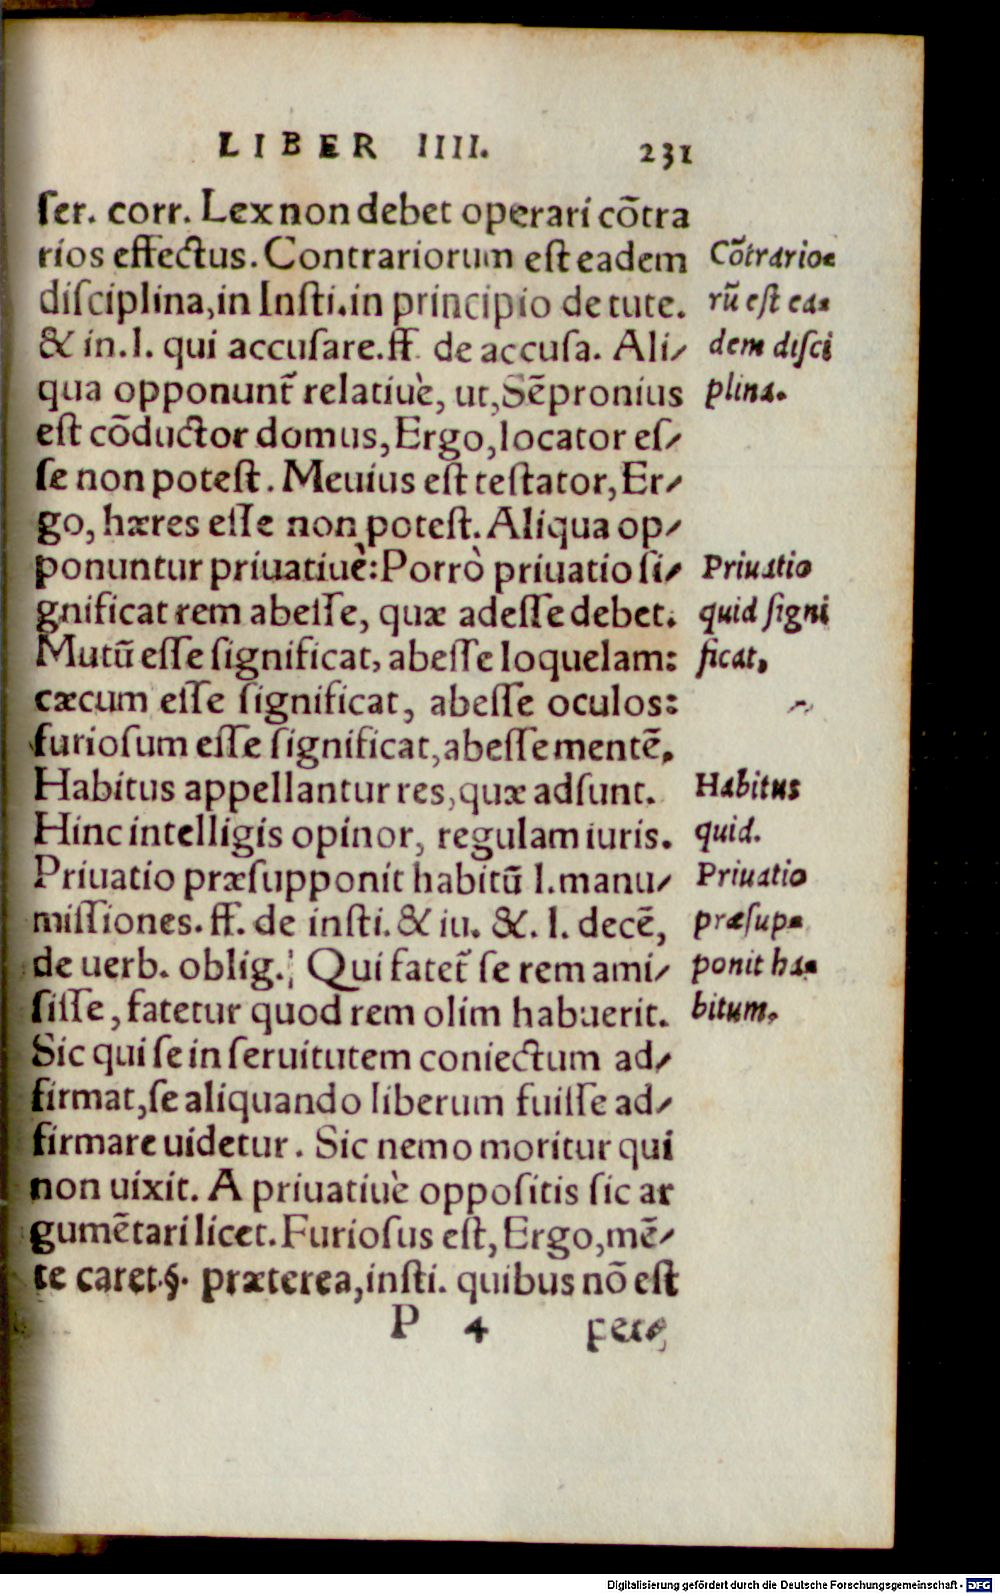 LIBER IIII. 231
ſer. corr. Lex non debet operari cõtra
rios effectus. Contrariorum eſt eadem
diſciplina, in Inſti. in principio de tute.
& in. l. qui accuſare. ff. de accuſa. Ali⸗
qua opponunt᷑ relatiuè, ut, Sẽpronius
eſt cõductor domus, Ergo, locator eſ⸗
ſe non poteſt. Meuius eſt teſtator, Er⸗
go, hæres eſſe non poteſt. Aliqua op⸗
ponuntur priuatiuè: Porrò priuatio ſi⸗
gnificat rem abeſſe, quæ adeſſe debet.
Mutũ eſſe ſignificat, abeſſe loquelam:
cæcum eſſe ſignificat, abeſſe oculos:
furioſum eſſe ſignificat, abeſſe mentẽ.
Habitus appellantur res, quæ adſunt.
Hinc intelligis opinor, regulam iuris.
Priuatio præſupponit habitũ l. manu⸗
miſſiones. ff. de inſti. & iu. &. l. decẽ,
de uerb. oblig. Qui fatet᷑ ſe rem ami⸗
ſiſſe, fatetur quod rem olim habuerit.
Sic qui ſe in ſeruitutem coniectum ad⸗
firmat, ſe aliquando liberum fuiſſe ad⸗
firmare uidetur. Sic nemo moritur qui
non uixit. A priuatiuè oppoſitis ſic ar
gumẽtari licet. Furioſus eſt, Ergo, mẽ⸗
te caret. §. præterea, inſti. quibus nõ eſt
P 4
Cõtrario⸗
rũ eſt ea⸗
dem diſci
plina.
Priuatio
quid ſigni
ficat.
Habitus
quid.
Priuatio
præſup⸗
ponit ha⸗
bitum.
Digitalisierung gefördert durch die Deutsche Forschungsgemeinschaft - DFG